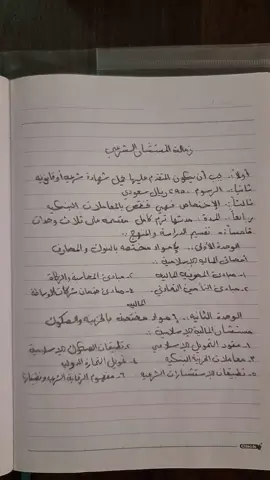 زمالة المستشار الشرعي
أولاً:. يجب أن يكون المتقدم عليها يحمل شهادة شرعية أو قانونية
ثانياً:. الرسوم ٢٩٥٠ ريال سعودي
ثالثاً:. الاختصاص فهي تختص بالمعاملات البنكية
رابعاً:. المدة مدتها ترم كامل مقسمه على ثلاث وحدات
خامساً:. تقسيم الدراسة والمنهج:.
الوحدة الأولى:. ٤ مواد مختصه بالبنوك والمصارف
أخصائي المالية الإسلامية:.
١- مبادئ المالية ٣- مبادئ المحاسبة والزكاة
٢- مبادئ التأمين التعاوني ٤- مبادئ شركات الوساطة
المالية
الوحدة الثانية:. ٦ مواد مختصة بالخزينة والصكوك
مستشار المالية الإسلامية:.
١- عقود التمويل الإسلامي ٢- تطبيقات الصكوك الإسلامية
٣- معاملات الخزينة البنكية ٤- تمويل التجارة الدولية
٥- تطبيقات الاستشارات الشرعية ٦- مفهوم الرقابة الشرعية